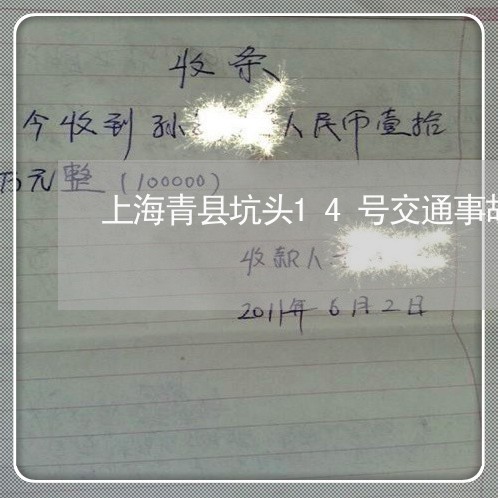 收条
今收到孙 人民币壹拾
万元整(100000)
上海青县坑头14号交通事故
收款人
2011年6月2日